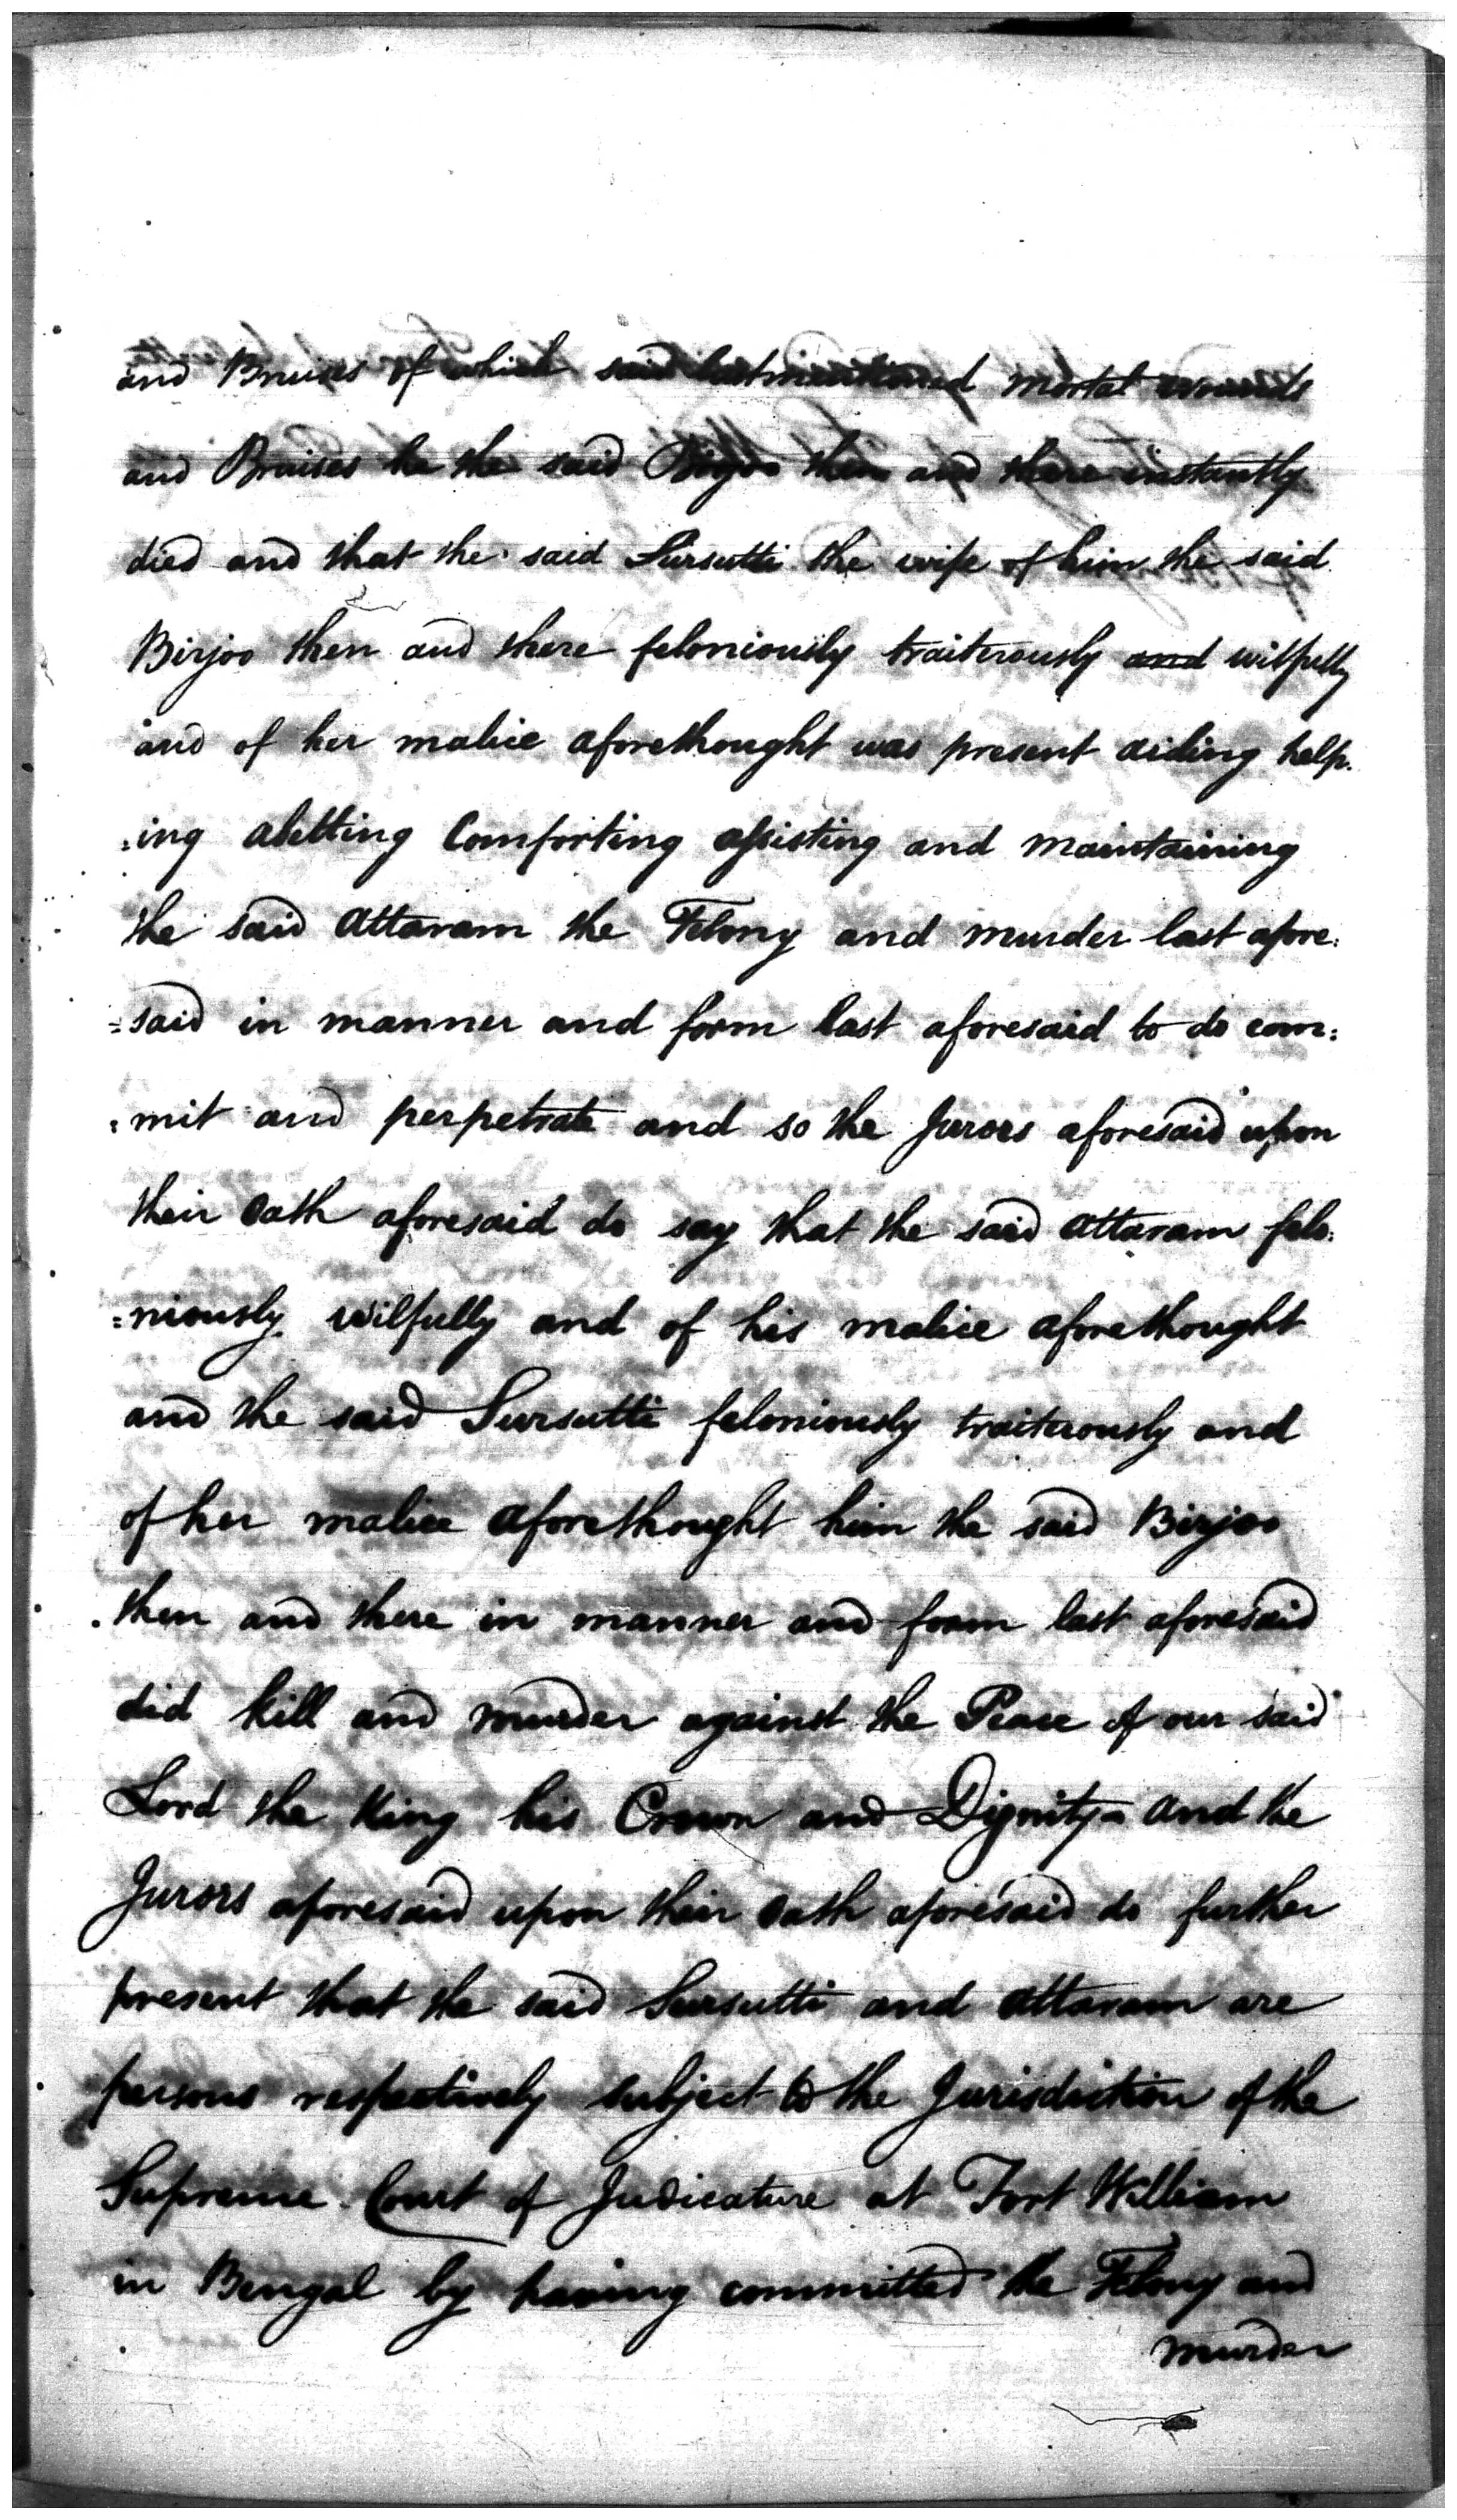 and Bruises of which said lastmentioned mortal wounds
and Bruises he the said Birjoo then and there instantly
died and that the said Sursutti the wife of him the said
Birjoo then and there feloniously traiterously and wilfully
and of her malice aforethought was present aiding help.
:ing abetting Comforting assisting and maintaining
the said Attaram the Felony and murder last afore:
=said in manner and form last aforesaid to do com:
:mit and perpetrate and so the Jurors aforesaid upon
their Oath aforesaid do say that the said Attaram felo:
=niously wilfully and of his malice aforethought
and the said Sursutti feloniously traiterously and
of her malice aforethought him the said Birjoo
then and there in manner and form last aforesaid
did kill and murder against the Peace of our said
Lord the King his Crown and Dignity - And the
Jurors aforesaid upon their Oath aforesaid do further
present that the said Sursutti and Attaram are
persons respectively subject to the Jurisdiction of the
Supreme Court of Judicature at Fort William
in Bengal by having committed the Felony and
murder